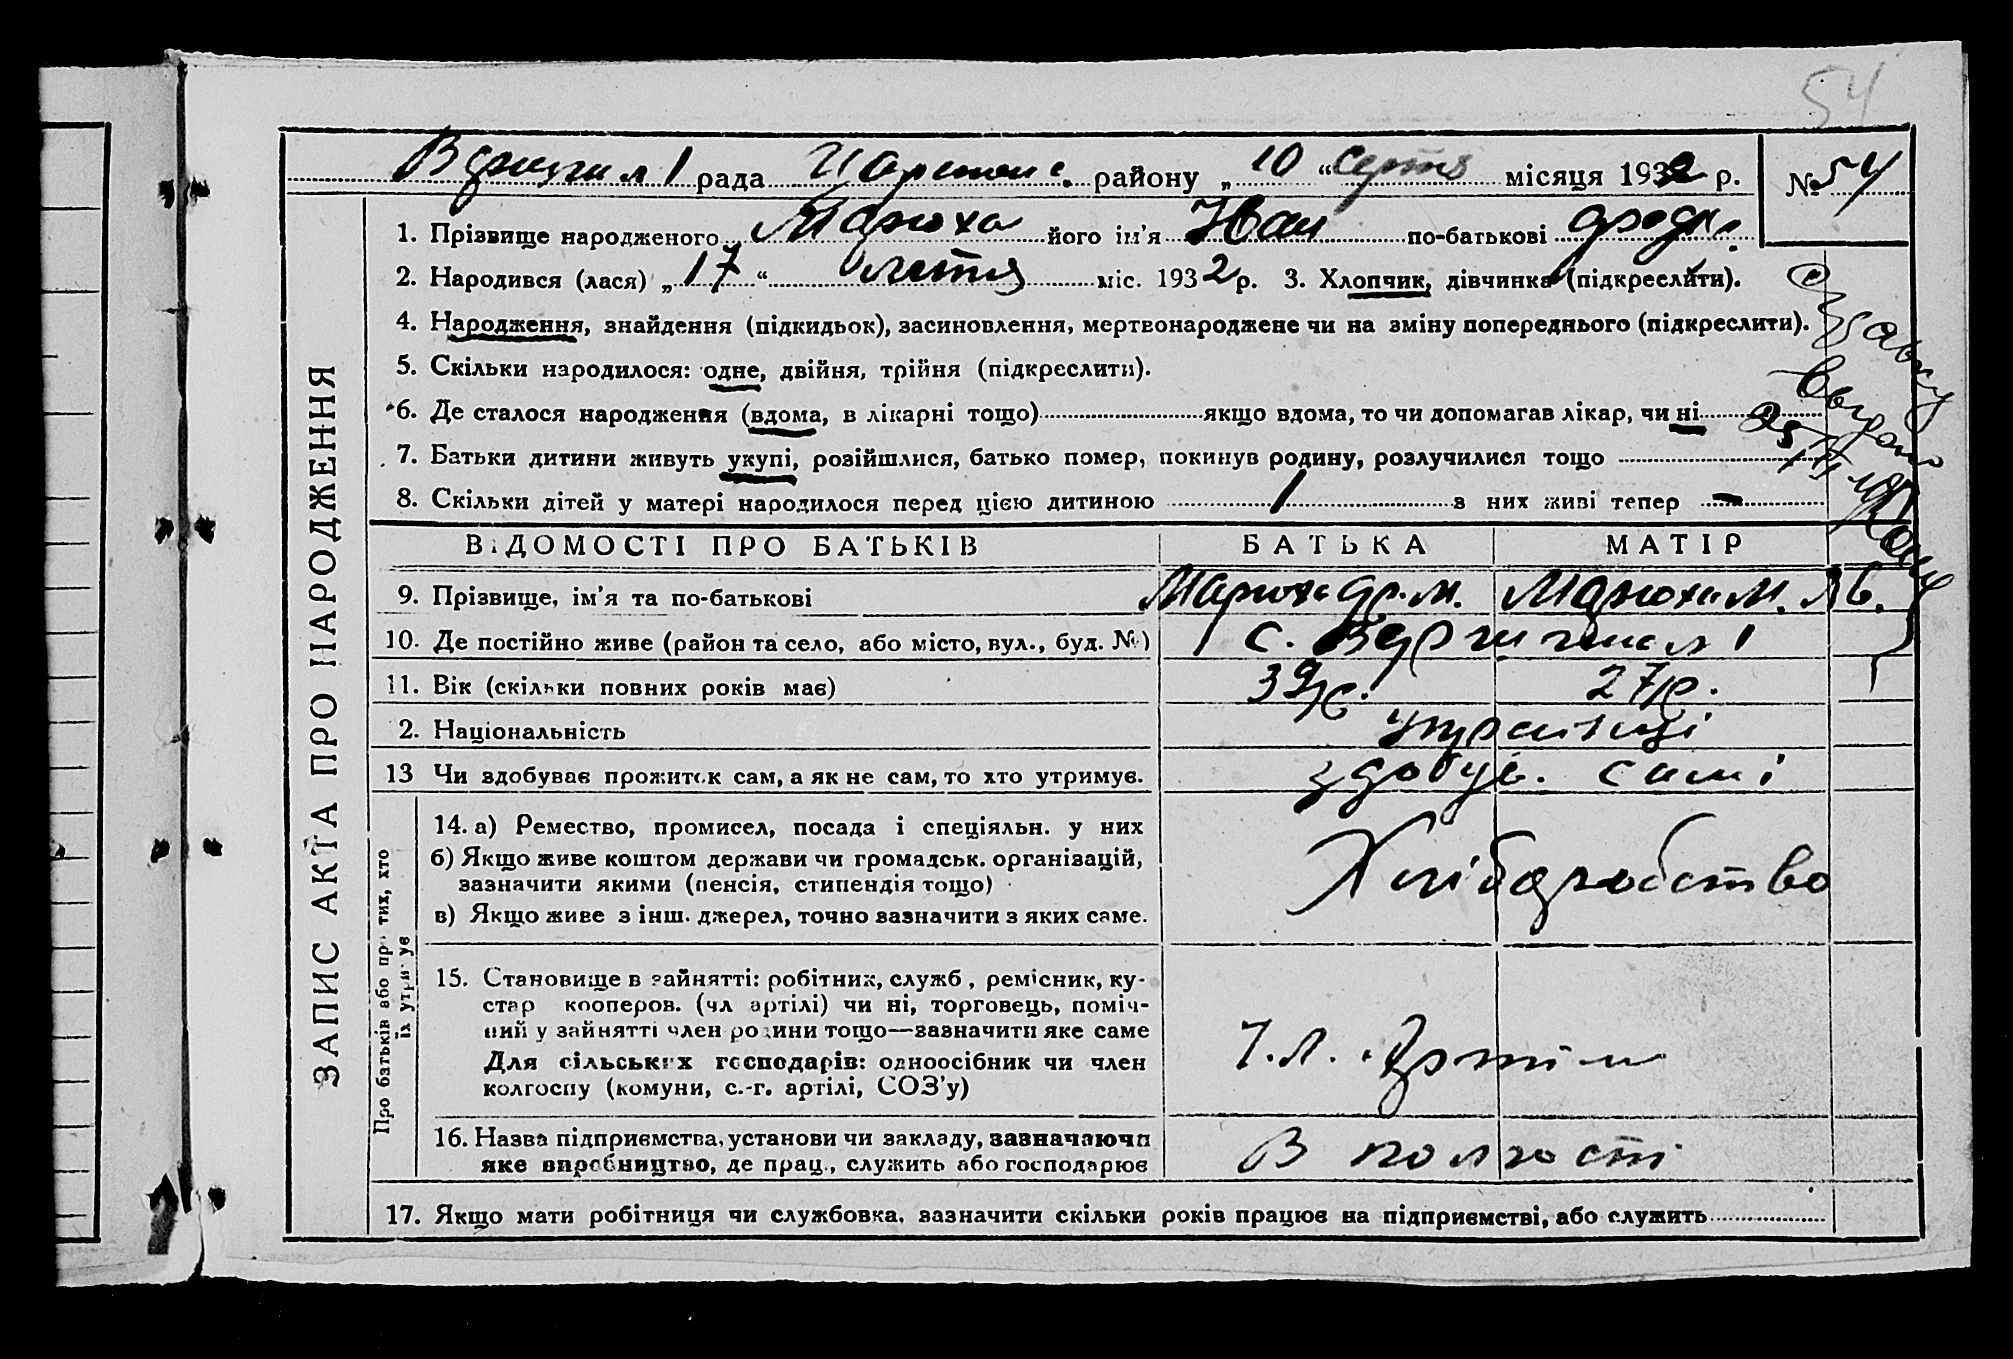 54
рада района „ 10 “ місяця 1932 р.
№ 54
1. Прізвище народженого Марюха його ім’я Иван по-батькові
2. Народився (лася) „ 17 “ лютня міс. 1932 р. 3. Хлопчик, дівчинка (підкреслити).
4. Народження, знайдення (підкидьок), засиновлення, мертвонароджене чи на зміну попереднього (підкреслити).
5. Скільки народилося: одне, двійня, трійня (підкреслити).
6. Де сталося народження (вдома, в лікарні тощо) якщо вдома, то чи допомагав лікар, чи ні
7. Батьки дитини живуть укупі, розійшлися, батько помер, покинув родину, розлучилися тощо
8. Скільки дітей у матері народилося перед цією дитиною 1 з них живі тепер –
ЗАПИС АКТА ПРО НАРОДЖЕННЯ
ВІДОМОСТІ ПРО БАТЬКІВ БАТЬКА МАТІР
9. Прізвище, ім’я та по-батькові Марюха М. Марюха М.
10. Де постійно живе (район та село, або місто, вул., буд. №) с.
11. Вік (скільки повних років має) 39 р. 27 р.
2. Національність українці
13 Чи здобуває прожиток сам, а як не сам, то хто утримує. здобув. самі
Про батьків або про тих, хто
їх утримує
14. а) Ремество, промисел, посада і спеціяльн. у них
б) Якщо живе коштом держави чи громадськ. організацій,
зазначити якими (пенсія, стипендія тощо)
в) Якщо живе з інш. джерел, точно зазначити з яких саме.
Хліборобство
15. Становище в зайнятті: робітник, служб., ремісник, ку-
стар кооперов. (чл артілі) чи ні, торговець, поміч-
ний у зайнятті член родини тощо—зазначити яке саме
Для сільських господарів: одноосібник чи член
колгоспу (комуни, с.-г. артілі, СОЗ’у)
Чл. Артіли
16. Назва підприємства, установи чи закладу, зазначаючи
яке виробництво, де прац., служить або господарює
В колгості
17. Якщо мати робітниця чи службовка, зазначити скільки років працює на підприємстві, або служить